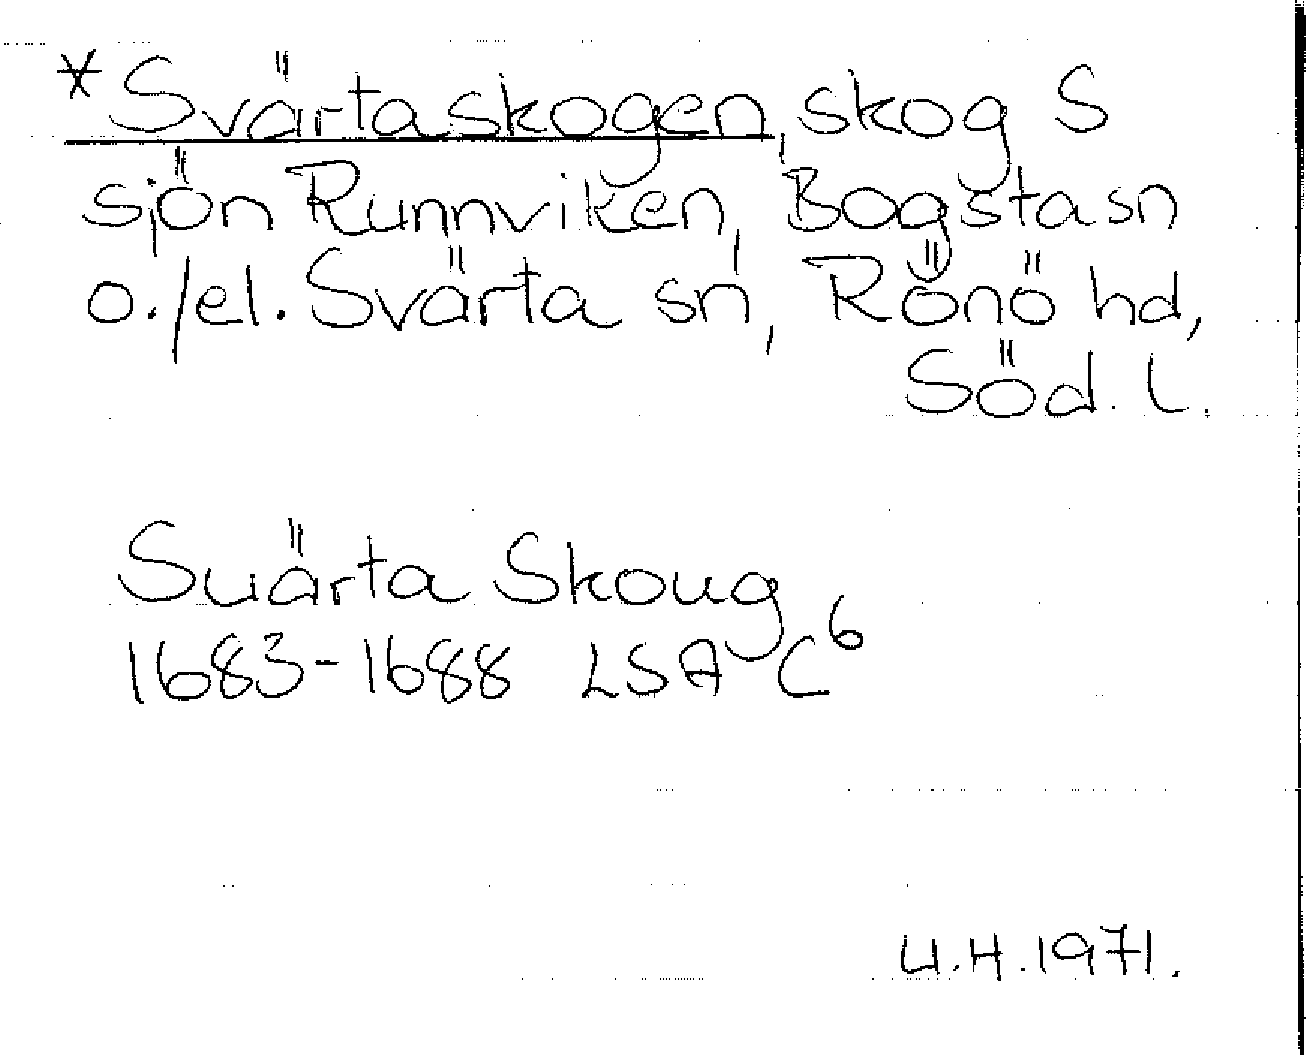 *Svärtaskogen, skog S
sjön Runnviken, Bogsta sn
o./el. Svärta sn, Rönö hd,
Söd. l.
Suärta Skoug
1683-1688 LSA C⁶
U.H. 1971.